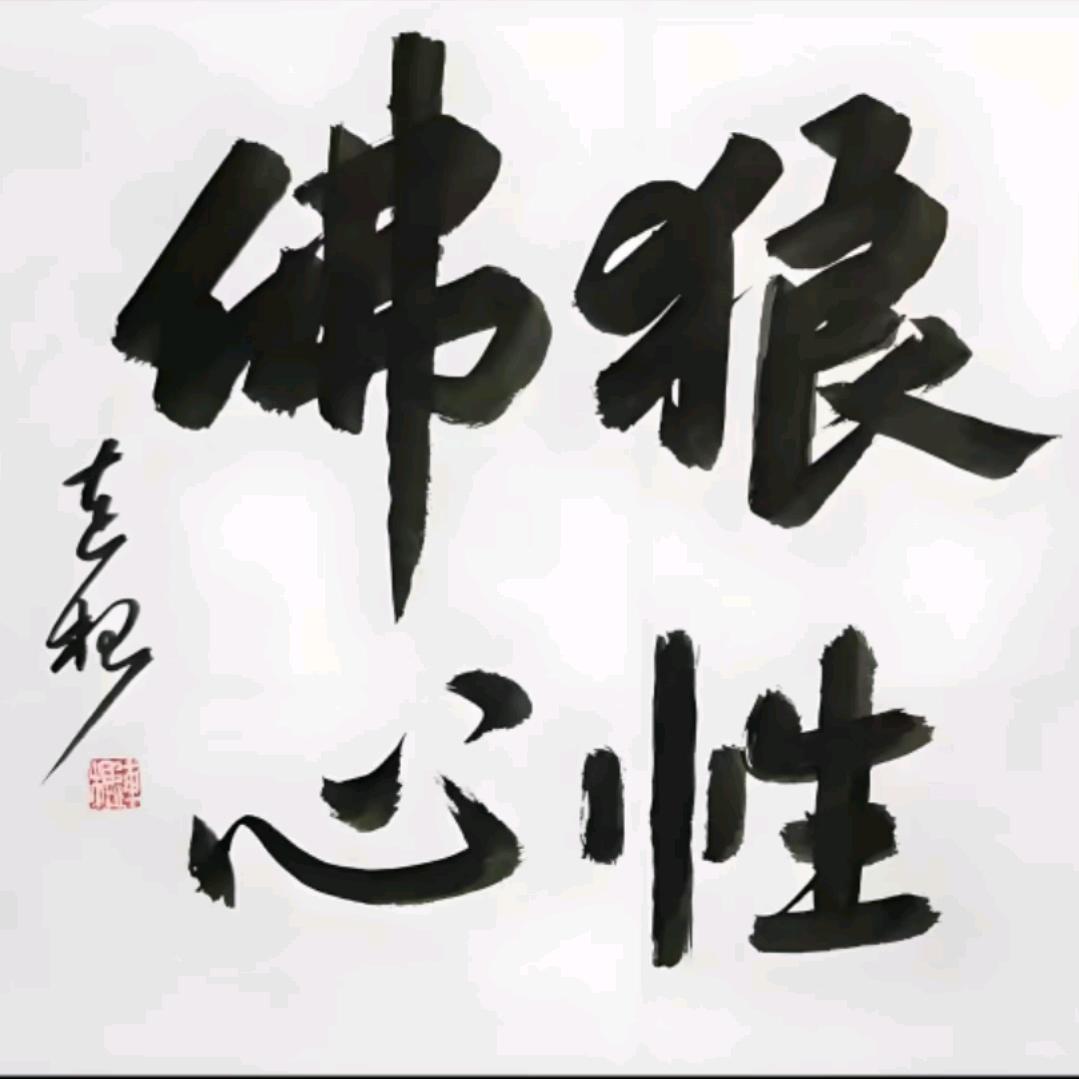 狼性
佛心